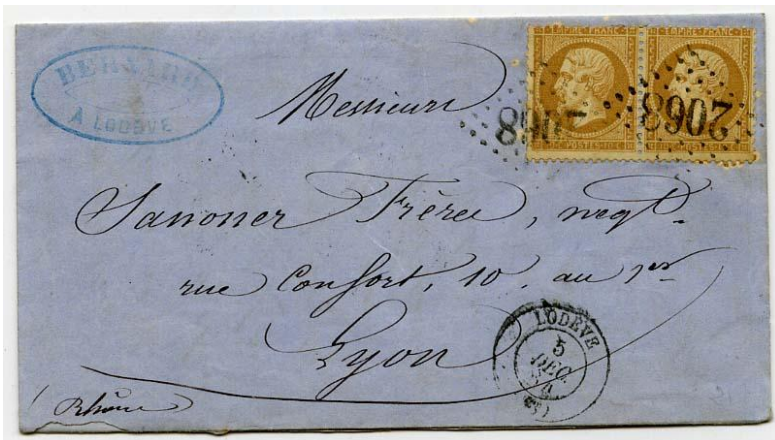 BERNARD
A LODEVE
EMPIRE FRANC
EMPIRE FRANC
2068
2068
POSTES
Messieurs
Sanoner Frères, negt.
rue Confort, 10, au 1er
Lyon
Rhône
LODÈVE
5
DEC.